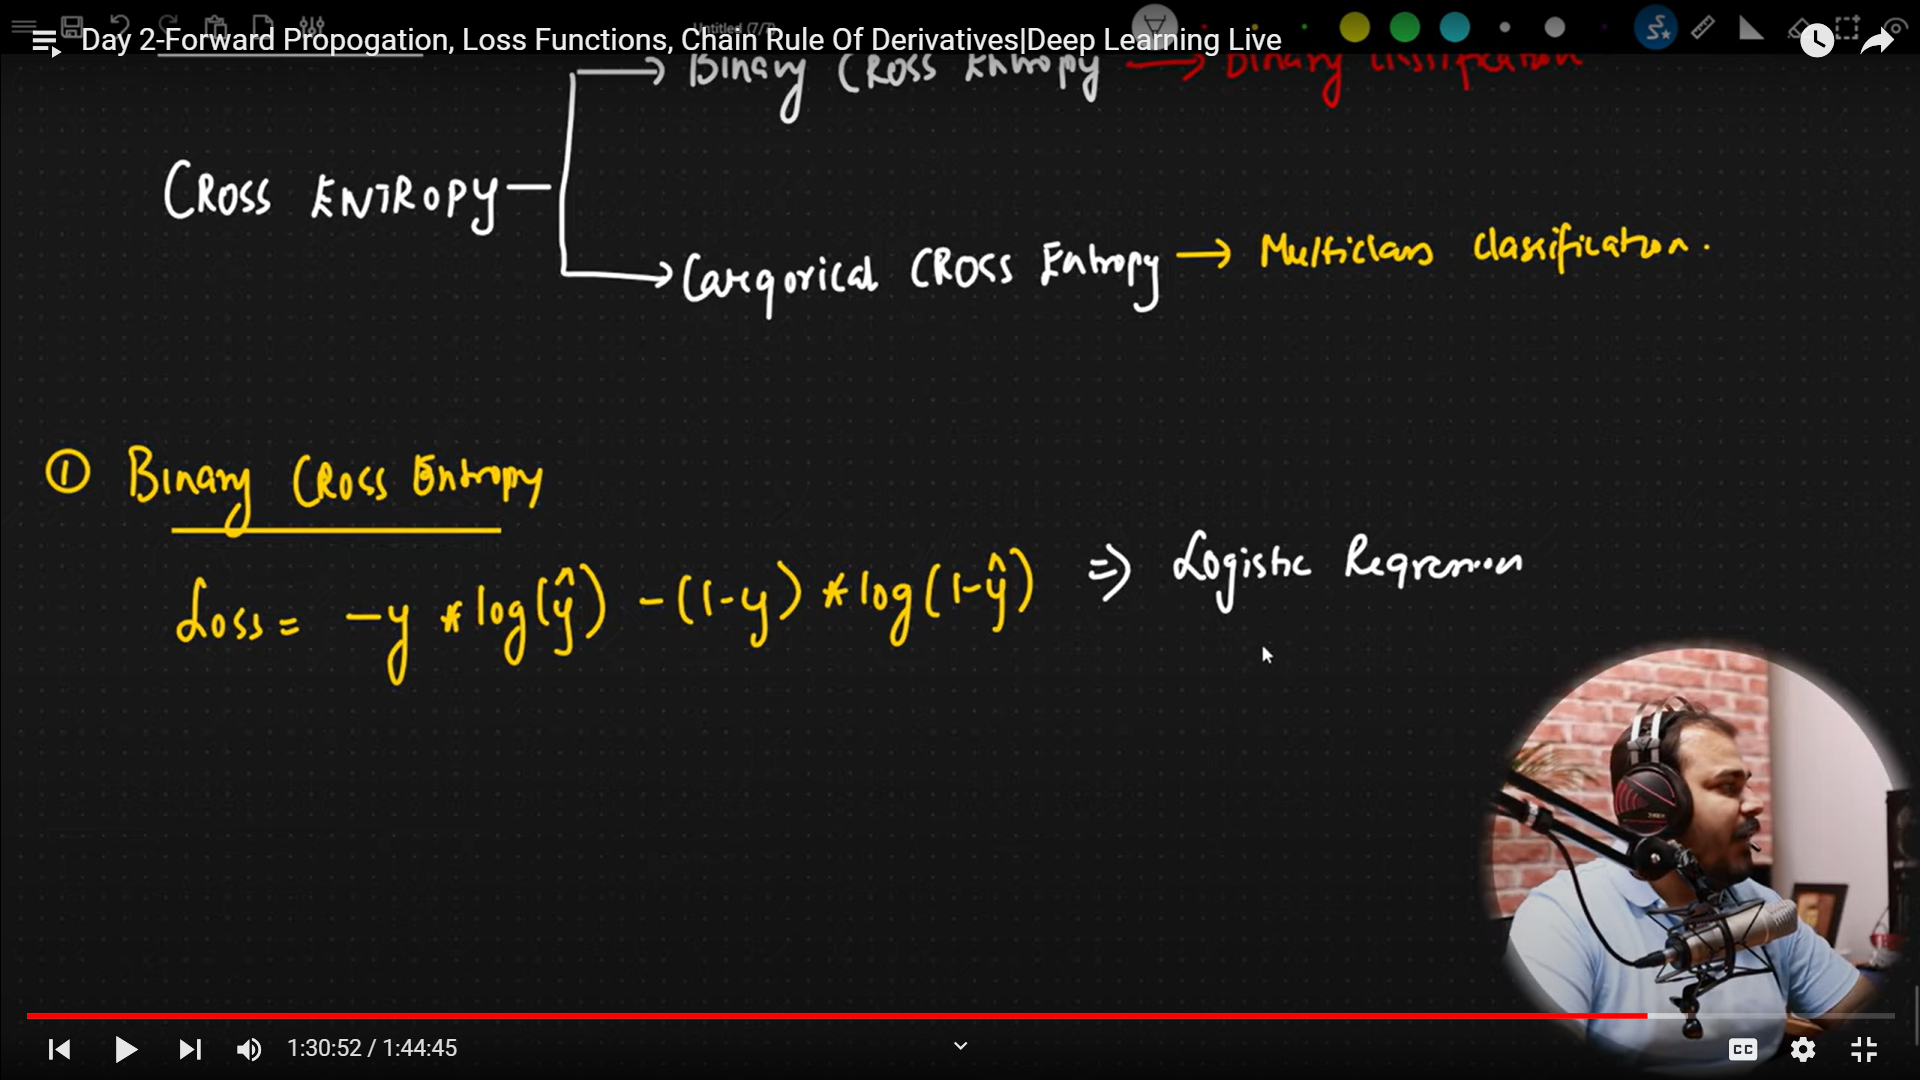 Untitled (7/7)
Day 2-Forward Propogation, Loss Functions, Chain Rule Of Derivatives|Deep Learning Live
Binary CROSS Entropy → Binary classification
CROSS ENTROPY
Categorical CROSS Entropy → Multiclass Classification.
① Binary CROSS Entropy
Loss = -y * log(ŷ) - (1-y) * log(1-ŷ) ⇒ Logistic Regression
1:30:52 / 1:44:45
CC